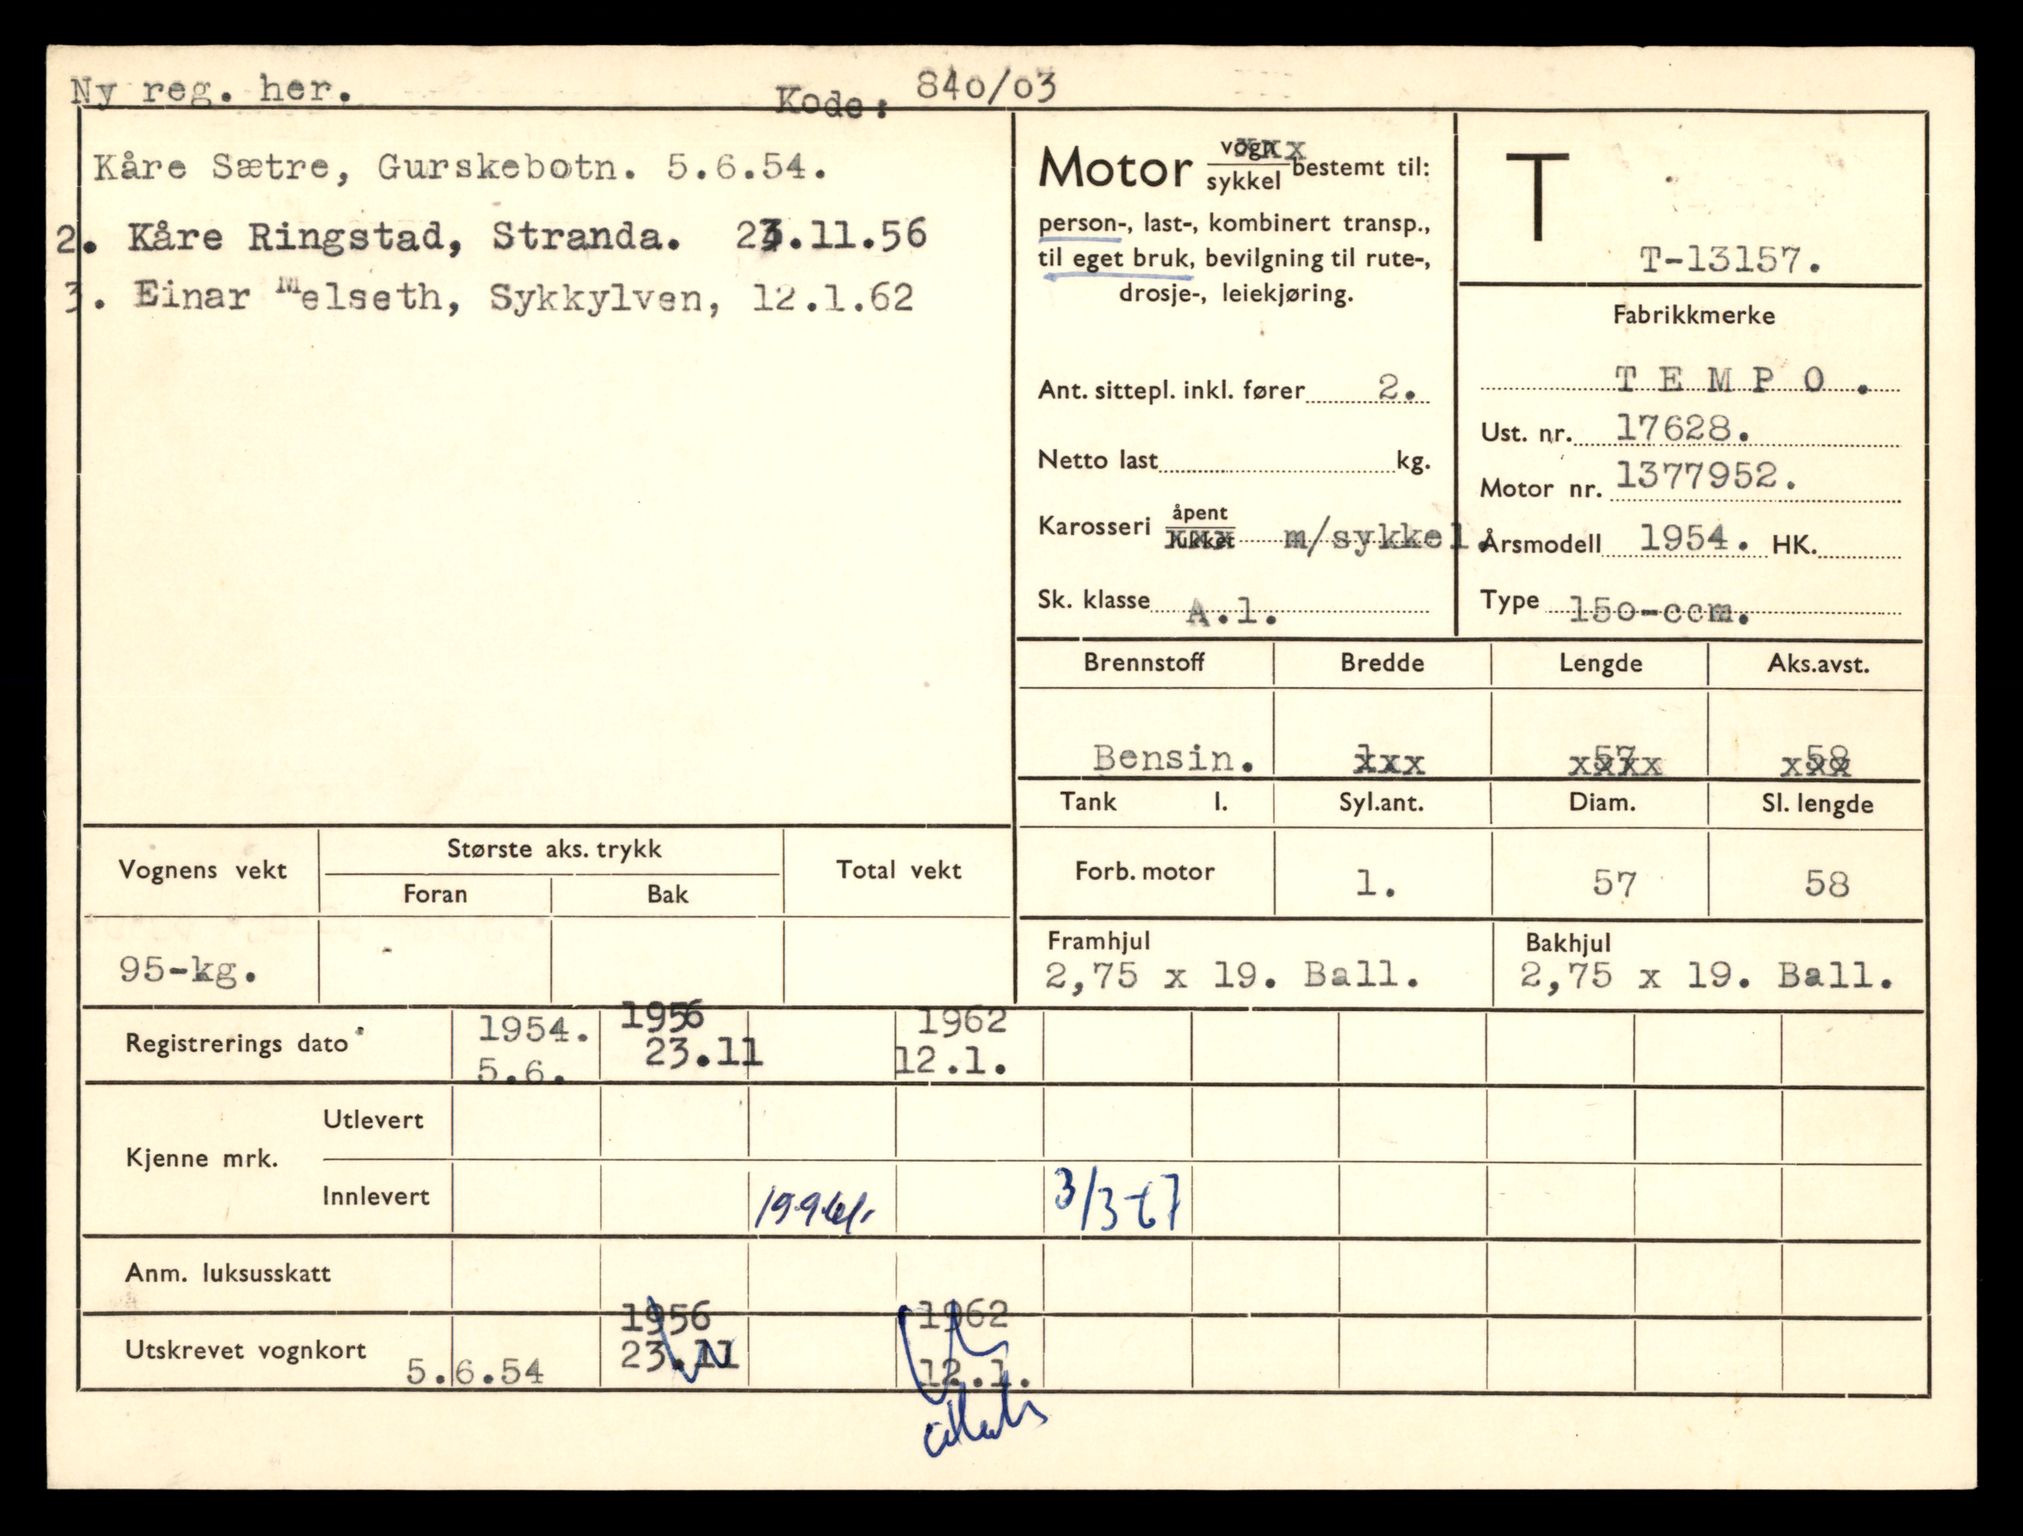 Ny reg. her.
Kode: 840/03
Kåre Sætre, Gurskebotn. 5.6.54.
2. Kåre Ringstad, Stranda. 23.11.56
3. Einar Melseth, Sykkylven, 12.1.62
Motor vogn xxx sykkel bestemt til:
person-, last-, kombinert transp.,
til eget bruk, bevilgning til rute-,
drosje-, leiekjøring.
Ant. sittepl. inkl. fører 2.
Netto last kg.
Karosseri åpent lukket xxx m/sykkel.
Sk. klasse A.1.
T
T-13157.
Fabrikkmerke
TEMPO.
Ust. nr. 17628.
Motor nr. 1377952.
Årsmodell 1954. HK.
Type 150-ccm.
Brennstoff Bredde Lengde Aks.avst.
Bensin. 1xxx 57 xxxx 58 xxx
Tank l. Syl.ant. Diam. Sl. lengde
Forb. motor 1. 57 58
Framhjul Bakhjul
2,75 x 19. Ball. 2,75 x 19. Ball.
Vognens vekt Største aks. trykk Total vekt
Foran Bak
95-kg.
Registrerings dato 1954. 1956 1962
5.6. 23.11 12.1.
Kjenne mrk.
Utlevert
Innlevert 3/3-67
Anm. luksusskatt
1956 1962
Utskrevet vognkort 5.6.54 23.11 12.1.